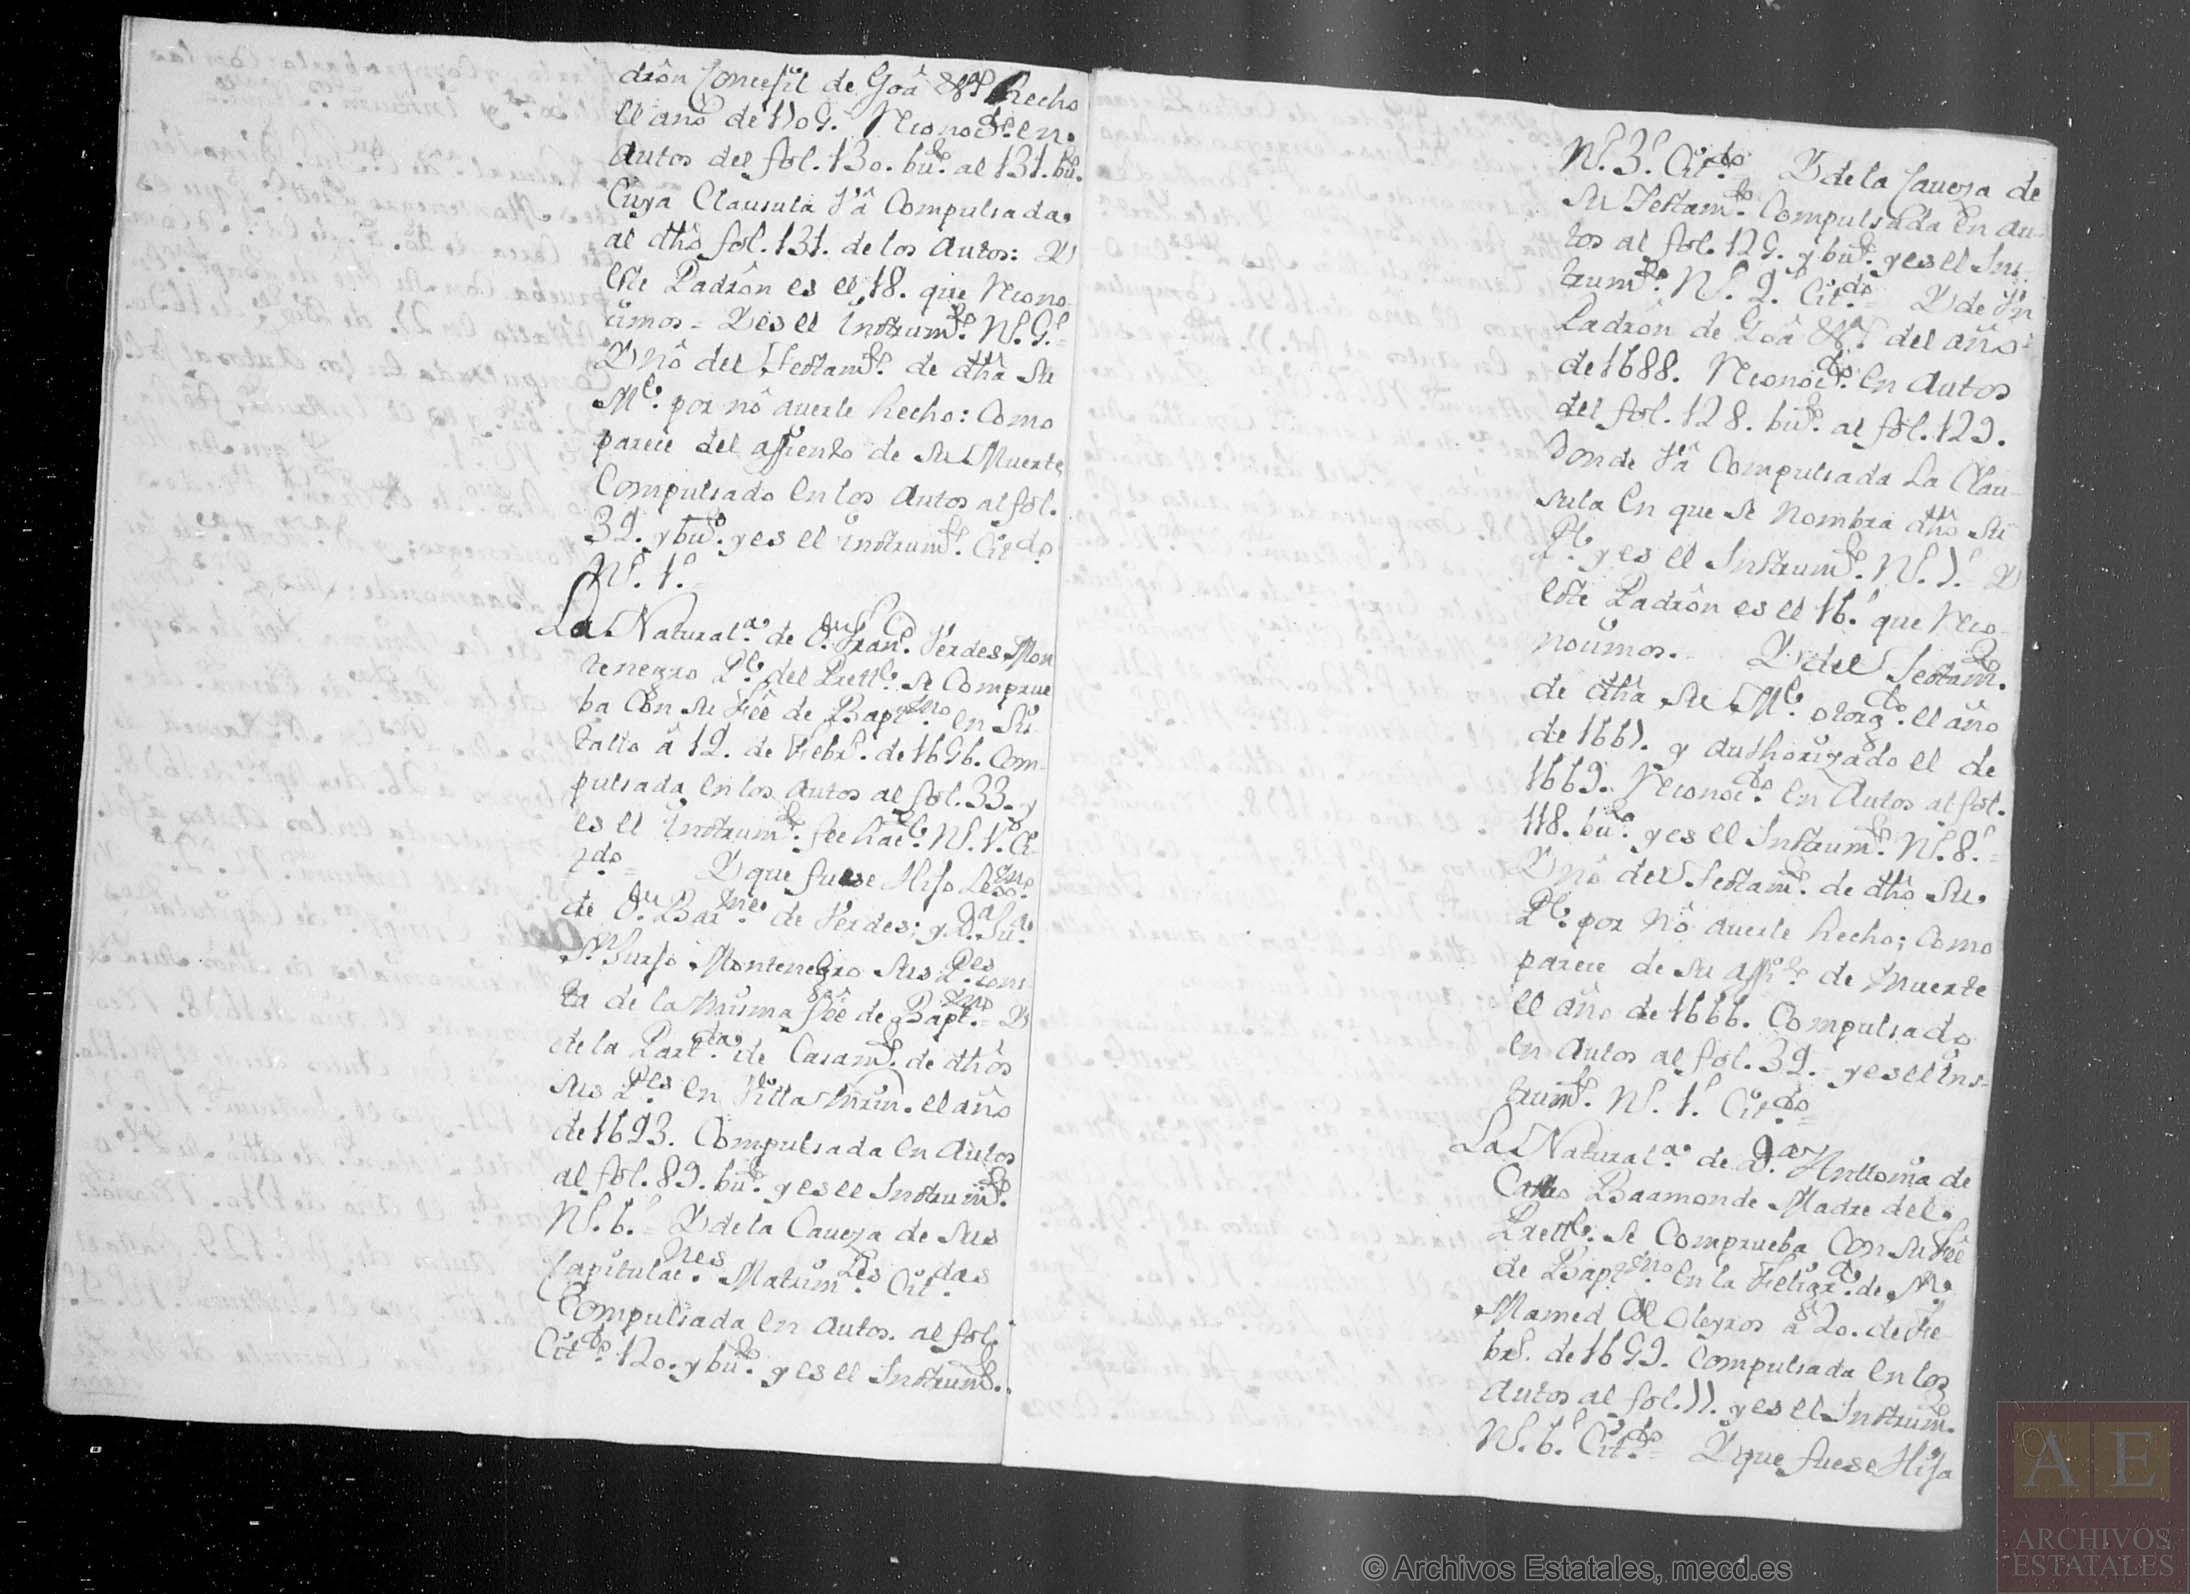 drón Concejil de Goâ &ª hecho
el año de 1709. Reconocdo. en
Autos del fol. 130. bto. al 131. bto.
Cuya Clausula vâ Compulsada
al dho fol. 131. de los Autos: Y
este Padrón es el 18. que Recono-
cimos = Y es el instrumto. Nº. 9º =
Y nô del Testamto. de dha su
Me. por nô averle hecho: Como
parece del assiento de su Muerte
Compulsado en los Autos al fol.
32. y bto. y es el instrumto. Citdo.
Nº. 1º =
La Naturala. de Dn. Franco. Verdes Mon
tenegro Pe. del Prette. se Comprue
ba Con su Fee de Baptismo. en Su
tallo â 12. de Febro. de 1696. Com-
pulsada en los Autos al fol. 33. y
es el instrumto. Nº. 1º. Ci-
tdo. = Y que fuese Hijo Legmo.
de Dn. Barme. de Verdes; y Da.
Sturjo Montenegro sus Pes. cons-
ta de la misma fee de Baptsmo. = Y
de la Partda. de Casamto. de dhos
sus Pes. en Villa el año
de 1693. Compulsada en Autos
al fol. 89. bto. y es el Instrumto.
Nº. 6º = Y de la Caveza de sus
Capitulacnes. Matrimles. Citdas.
Compulsada en Autos. al fol.
Citdo. 120. y bto. y es el Instrumto.
Nº. 3º. Citdo. Y de la Caveza de
su Testamto. Compulsada en Au-
tos al fol. 129. y bto. y es el Ins-
trumto. Nº. 2. Citdo. = Y de Un
Padrón de Goâ &ª del año
de 1688. Reconocdo. en Autos
del fol. 128. bto. al fol. 129.
Donde vâ Compulsada La Clau-
sula en que se nombra dho su
Pe. y es el Instrumto. Nº. 7º. Y
este Padrón es el 16º. que Reco-
nocimos. = Y del Testamto.
de dha su Me. otorgdo. el año
de 1667. y authorizado el de
1669. Reconocdo. en Autos al fol.
118. bto. y es el Instrumto. Nº. 8º. =
Y nô del Testamto. de dho su
Pe. por nô averle hecho; Como
parece de su assto. de Muerte
el año de 1666. Compulsado
en Autos al fol. 32. y es el Ins-
trumto. Nº. 1º Citdo. =
La Naturala. de Da. Anttonia de
Baamonde Madre del
Prette. se Comprueba Con su Fee
de Baptsmo. en la Feligra. de Sn.
Mamed de Oleyros â 20. de Fe-
bro. de 1699. Compulsada en los
Autos al fol. 77. y es el Instrumto.
Nº. 6º. Citdo. = Y que fuese Hija
© Archivos Estatales, mecd.es
AE
ARCHIVOS
ESTATALES